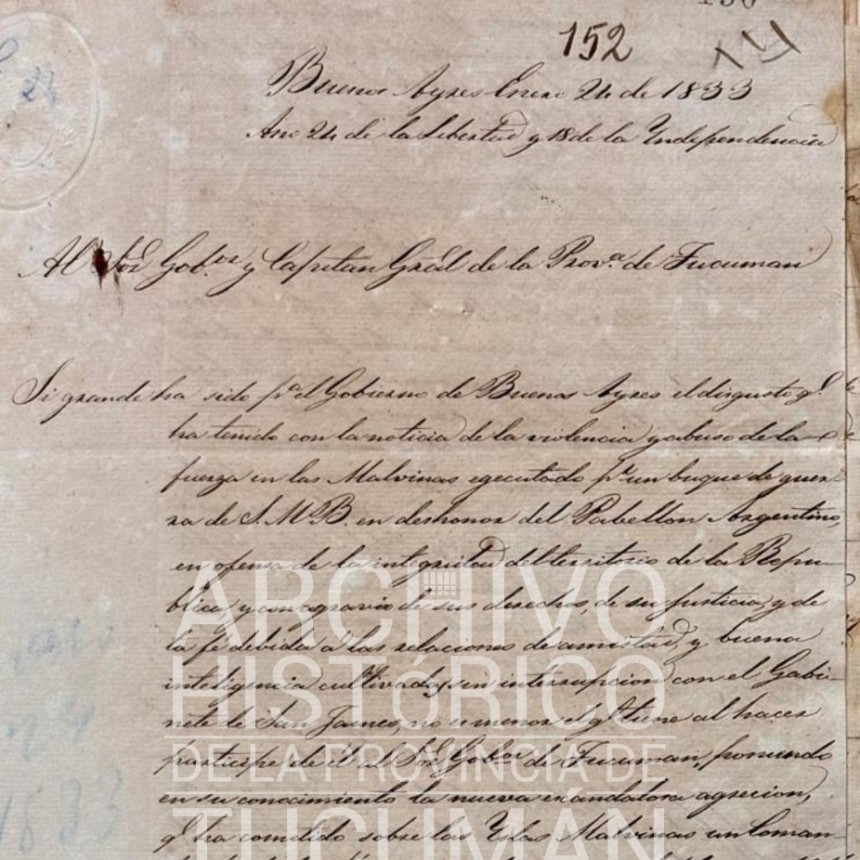 152
Buenos Ayres Enero 24 de 1833
Año 24 de la Libertad y 18 de la Independencia
Al Sor Gobor y Capitan Gral de la Prova de Tucuman
Si grande ha sido pa el Gobierno de Buenos Ayres el disgusto qe
ha tenido con la noticia de la violencia y abuso de la
fuerza en las Malvinas egecutado pr un buque de guer-
ra de S. M. B. en deshonor del Pabellon Argentino,
en ofensa de la integridad del territorio de la Repu-
blica y con agravio de sus derechos, de su justicia, y de
la fé debida á las relaciones de amistad, y buena
inteligencia cultivadas sin interrupcion con el Gabi-
nete de San James, no es menor el qe tiene al hacer
participe de él al Sor Gobor de Tucuman, poniendo
en su conocimiento la nueva escandalosa agresion,
qe ha cometido sobre las Yslas Malvinas un Coman-
ARCHIVO
HISTÓRICO
DE LA PROVINCIA DE
TUCUMÁN